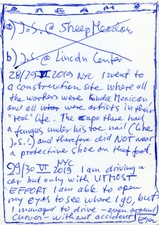 DREAMS
a) J.S. @ Sheep Meadow
b) J.S. @ Lincoln Center
28/29 VI 2019 NYC I went to
a construction site where all
the workers were Mexican
and all were artists in their
"real" life. The cops there had
a fungus under his toe nail (like
J.S.) and therefore did NOT wear
a protective shoe on that foot.
29/30 VI 2019 NYC I am driving a
car but only with UTMOST
EFFORT I am able to open
my eyes to see where I go, but
I manage to drive - even around
curves - without accident